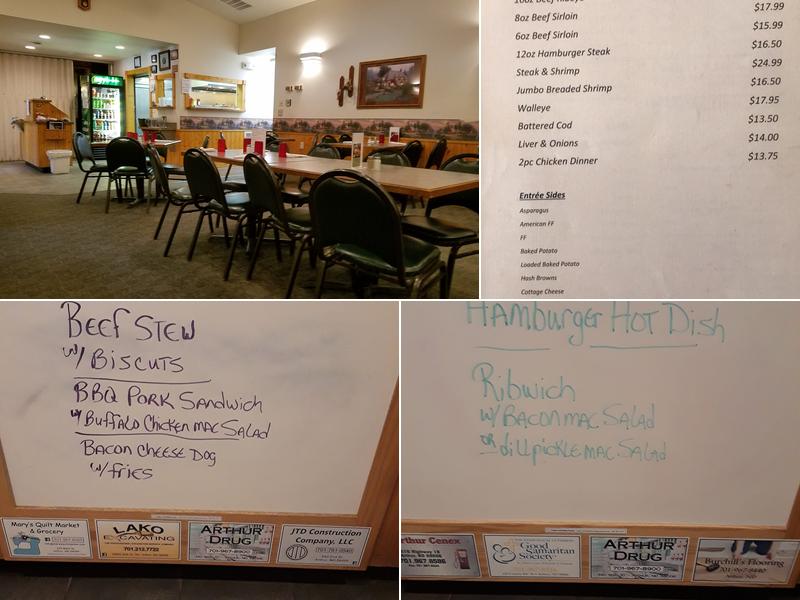 $17.99
8oz Beef Sirloin
$15.99
6oz Beef Sirloin
$16.50
12oz Hamburger Steak
$24.99
Steak & Shrimp
$16.50
Jumbo Breaded Shrimp
$17.95
Walleye
$13.50
Battered Cod
$14.00
Liver & Onions
$13.75
2pc Chicken Dinner
Entrée Sides
Asparagus
American FF
FF
Baked Potato
Loaded Baked Potato
Hash Browns
Cottage Cheese
BEEF STEW
w/ BISCUTS
BBQ PORK SANDWICH
w/ BUFFALO CHICKEN MAC SALAD
BACON CHEESE DOG
w/ fries
Mary's Quilt Market
& Grocery
LAKO
EXCAVATING
701.212.7722
ARTHUR
DRUG
701-967-8900
JTD Construction
Company, LLC
JTD
HAMburger HOT DISH
Ribwich
w/ BACON MAC SALAD
OR dill pickle MAC SALAD
Arthur Cenex
701.967.8586
Good
Samaritan
Society
ARTHUR
DRUG
701-967-8900
Burchill's Flooring
701-967-8440